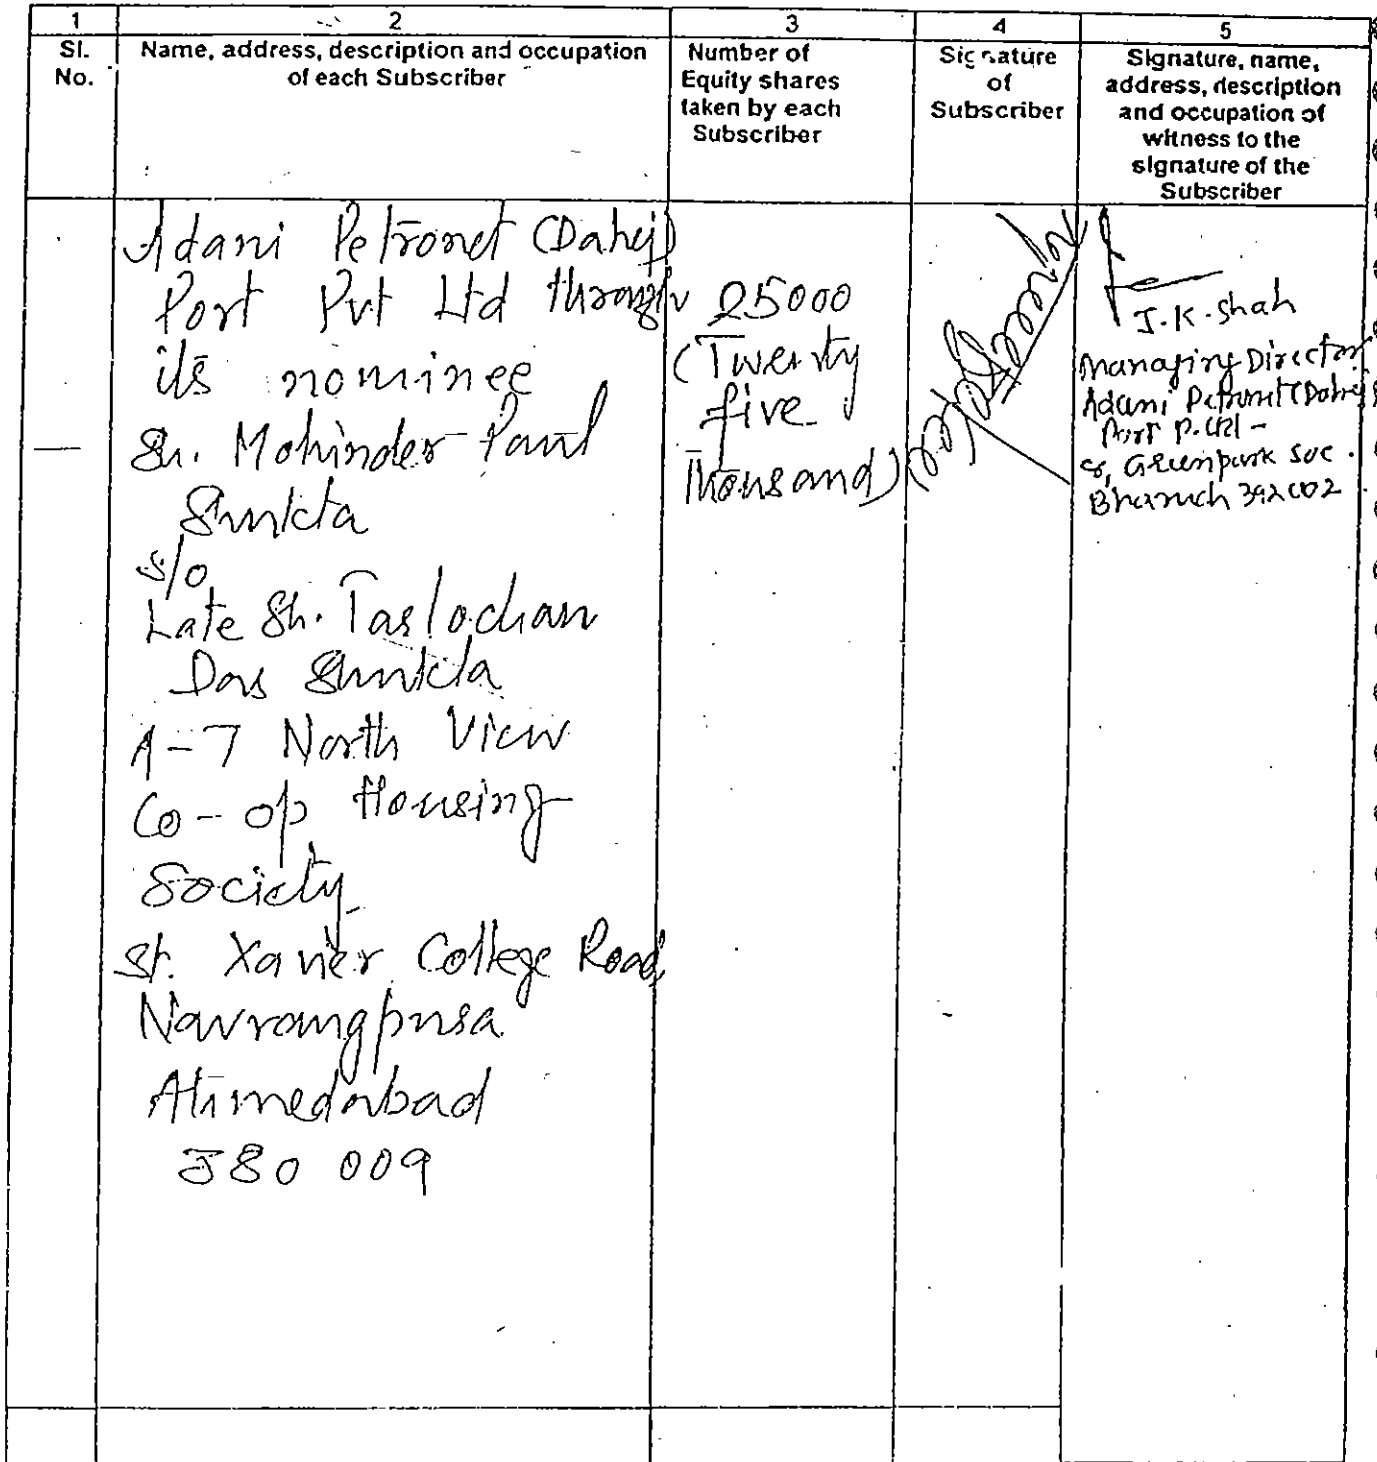 1 2 3 4 5
Sl.
No.
Name, address, description and occupation
of each Subscriber
Number of
Equity shares
taken by each
Subscriber
Signature
of
Subscriber
Signature, name,
address, description
and occupation of
witness to the
signature of the
Subscriber
Adani Petronet (Dahej)
Port Pvt Ltd through
its nominee
Sh. Mohinder Paul
s/o
Late Sh. Tarlochan
Das
A-7 North View
Co-op Housing
Society
St. Xavier College Road
Navrangpura
Ahmedabad
380 009
25000
(Twenty
five
Thousand)
J.K. Shah
Managing Director
Adani Petronet (Dahej)
Port P. Ltd -
8, Greenpark Soc.
Bharuch 392002